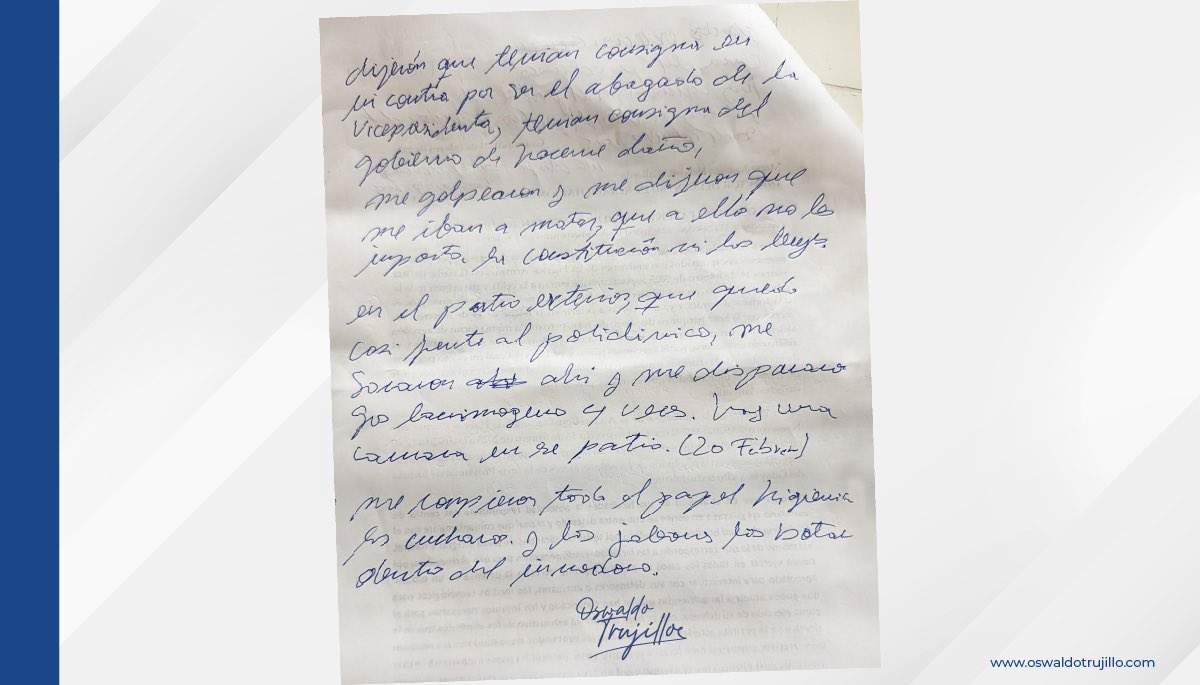 dijerón que tenian consigna en
mi contra por ser el abogado de la
Vicepresidenta, tenian consigna del
gobierno de hacerme daño,
me golpearon y me dijeron que
me iban a matar, que a ello no les
importa la constitución ni las leyes.
en el patio exterior, que queda
casi frente al policlinico, me
Sacaron ahi y me dispararo
gas lacrimogeno 4 veces. Hay una
camara en ese patio. (20 Febrero)
me rompieron todo el papel higienico
las cucharas y los jabones los botar
dentro del inodoro.
Oswaldo
Trujillo
www.oswaldotrujillo.com